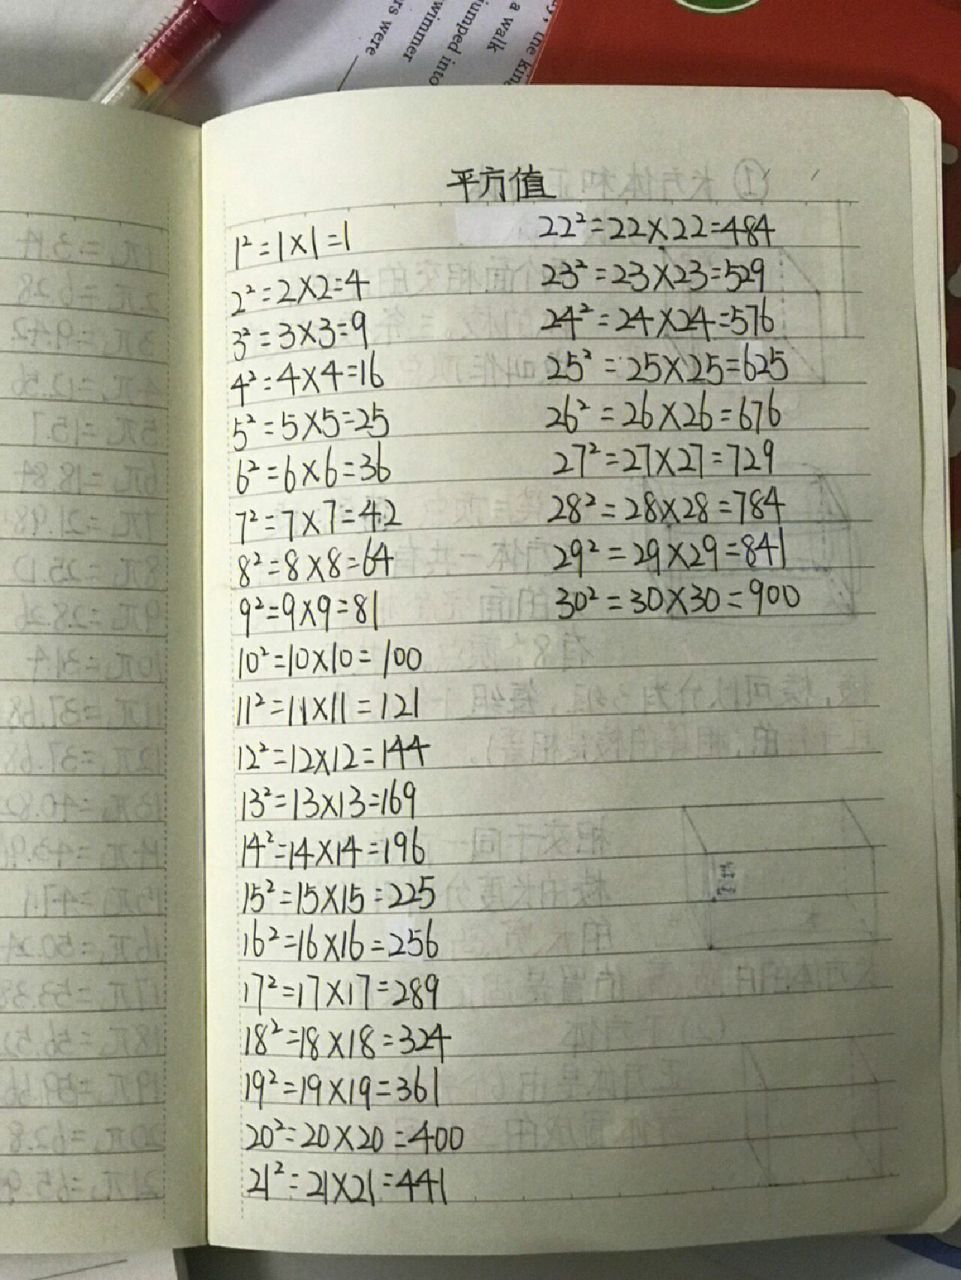 a walk
jumped into
wimmer
rs were
平方值
1²=1×1=1
2²=2×2=4
3²=3×3=9
4²=4×4=16
5²=5×5=25
6²=6×6=36
7²=7×7=42
8²=8×8=64
9²=9×9=81
10²=10×10=100
11²=11×11=121
12²=12×12=144
13²=13×13=169
14²=14×14=196
15²=15×15=225
16²=16×16=256
17²=17×17=289
18²=18×18=324
19²=19×19=361
20²=20×20=400
21²=21×21=441
22²=22×22=484
23²=23×23=529
24²=24×24=576
25²=25×25=625
26²=26×26=676
27²=27×27=729
28²=28×28=784
29²=29×29=841
30²=30×30=900